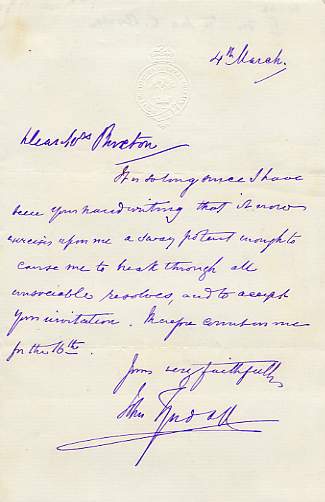 4th March.
Dear Mrs
It is so long since I have
seen your handwriting that it now
exercises upon me a sway potent enough to
cause me to break through all
unsociable resolves, and to accept
your invitation. Therefore count on me
for the 16th.
Yours very faithfully
John Tyndall